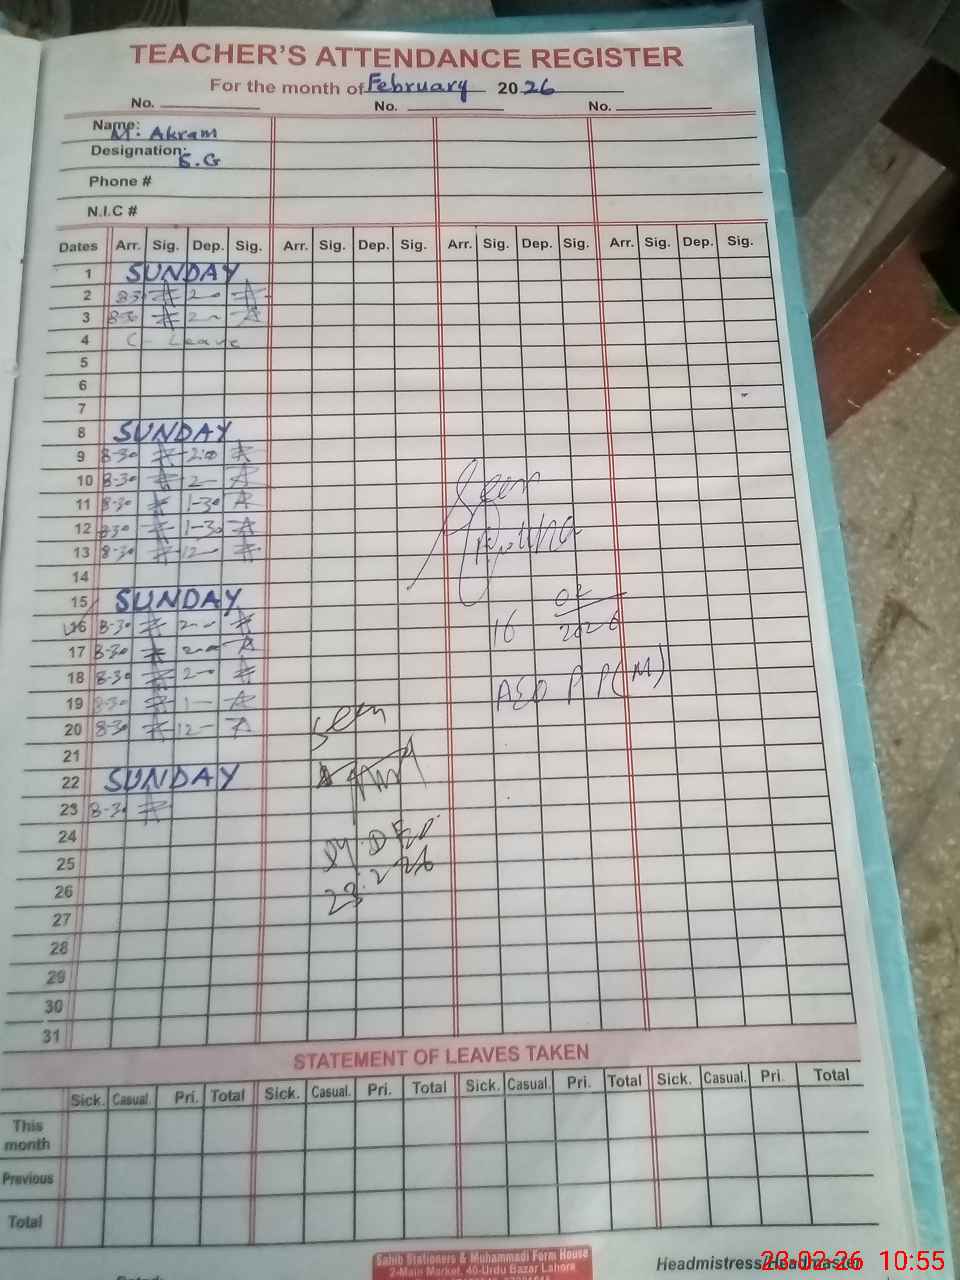 TEACHER'S ATTENDANCE REGISTER
For the month of February 2026
No. No. No.
Name: M. Akram
Designation: S.G
Phone #
N.I.C #
Dates Arr. Sig. Dep. Sig. Arr. Sig. Dep. Sig. Arr. Sig. Dep. Sig. Arr. Sig. Dep. Sig.
1 SUNDAY
2 8-30 2-0
3 8-30 2-
4 C- Leave
5
6
7
8 SUNDAY
9 8-30 2:00
10 8-30 2-
11 8-30 1-30
12 8-30 1-30
13 8-30 12-
14
15 SUNDAY
16 8-30 2-0
17 8-30 2-0
18 8-30 2-0
19 8-30 1-
20 8-30 12-
21
22 SUNDAY
23 8-30
24
25
26
27
28
29
30
31
Seen
16 02 2026
AEO P P(M)
Seen
23.2.26
STATEMENT OF LEAVES TAKEN
Sick. Casual. Pri. Total Sick. Casual. Pri. Total Sick. Casual. Pri. Total Sick. Casual. Pri. Total
This month
Previous
Total
Sahib Stationers & Muhammadi Form House
2-Main Market, 40-Urdu Bazar Lahore
Headmistress/Headmaster
23-02-26 10:55